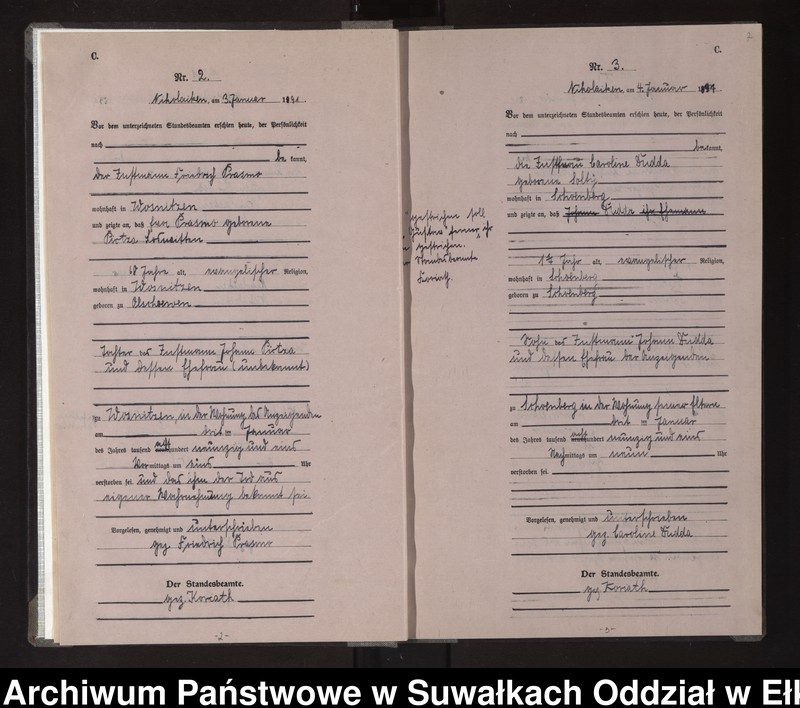 C.
Nr. 2.
Nikolaiken, am 3. Januar 1891
Vor dem unterzeichneten Standesbeamten erschien heute, der Persönlichkeit
nach
be kannt,
der Instmann Friedrich
wohnhaft in Wosnitzen
und zeigte an, daß geborene
68 Jahre alt, evangelischer Religion,
wohnhaft in Wosnitzen
geboren zu
Tochter des Instmann Johann
und dessen Ehefrau (unbekannt)
zu Wosnitzen, in der Wohnung des Anzeigenden
am Januar
des Jahres tausend acht hundert neunzig und eins
Vormittags um eins Uhr
verstorben sei und daß ihm der Tod aus
eigener Wahrnehmung bekannt sei
Vorgelesen, genehmigt und unterschrieben
gez. Friedrich
Der Standesbeamte.
gez. Koriath
-2-
2
C.
Nr. 3.
Nikolaiken, am 4. Januar 1891
Vor dem unterzeichneten Standesbeamten erschien heute, der Persönlichkeit
nach
bekannt,
die Instfrau Caroline Dudda
geborene
wohnhaft in Schoenberg
und zeigte an, daß Johann Dudda ihr Ehemann
gestrichen soll
gestrichen.
Standesbeamte
Koriath
Jahr alt, evangelischer Religion,
wohnhaft in Schoenberg
geboren zu Schoenberg
Sohn des Instmann Johann Dudda
und dessen Ehefrau der Anzeigenden
zu Schoenberg in der Wohnung seiner Eltern
am Januar
des Jahres tausend acht hundert neunzig und eins
Nachmittags um neun Uhr
verstorben sei
Vorgelesen, genehmigt und unterschrieben
gez. Caroline Dudda
Der Standesbeamte.
gez Koriath
-3-
Archiwum Państwowe w Suwałkach Oddział w Ełk